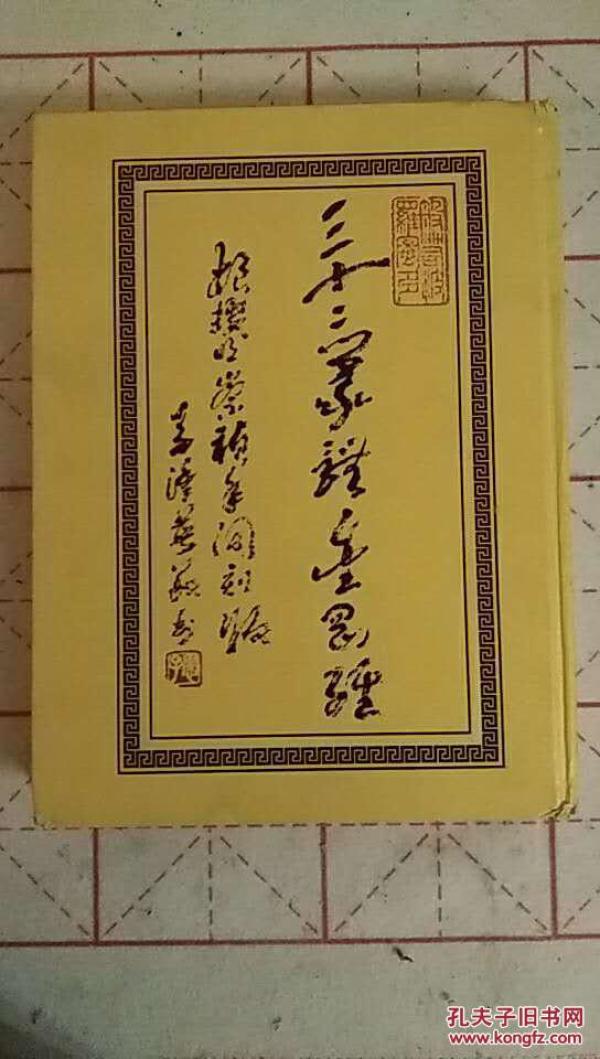 三十二篆體金剛經
根據明崇禎年間刻版
般若波
羅蜜多
孔夫子旧书网
www.kongfz.com